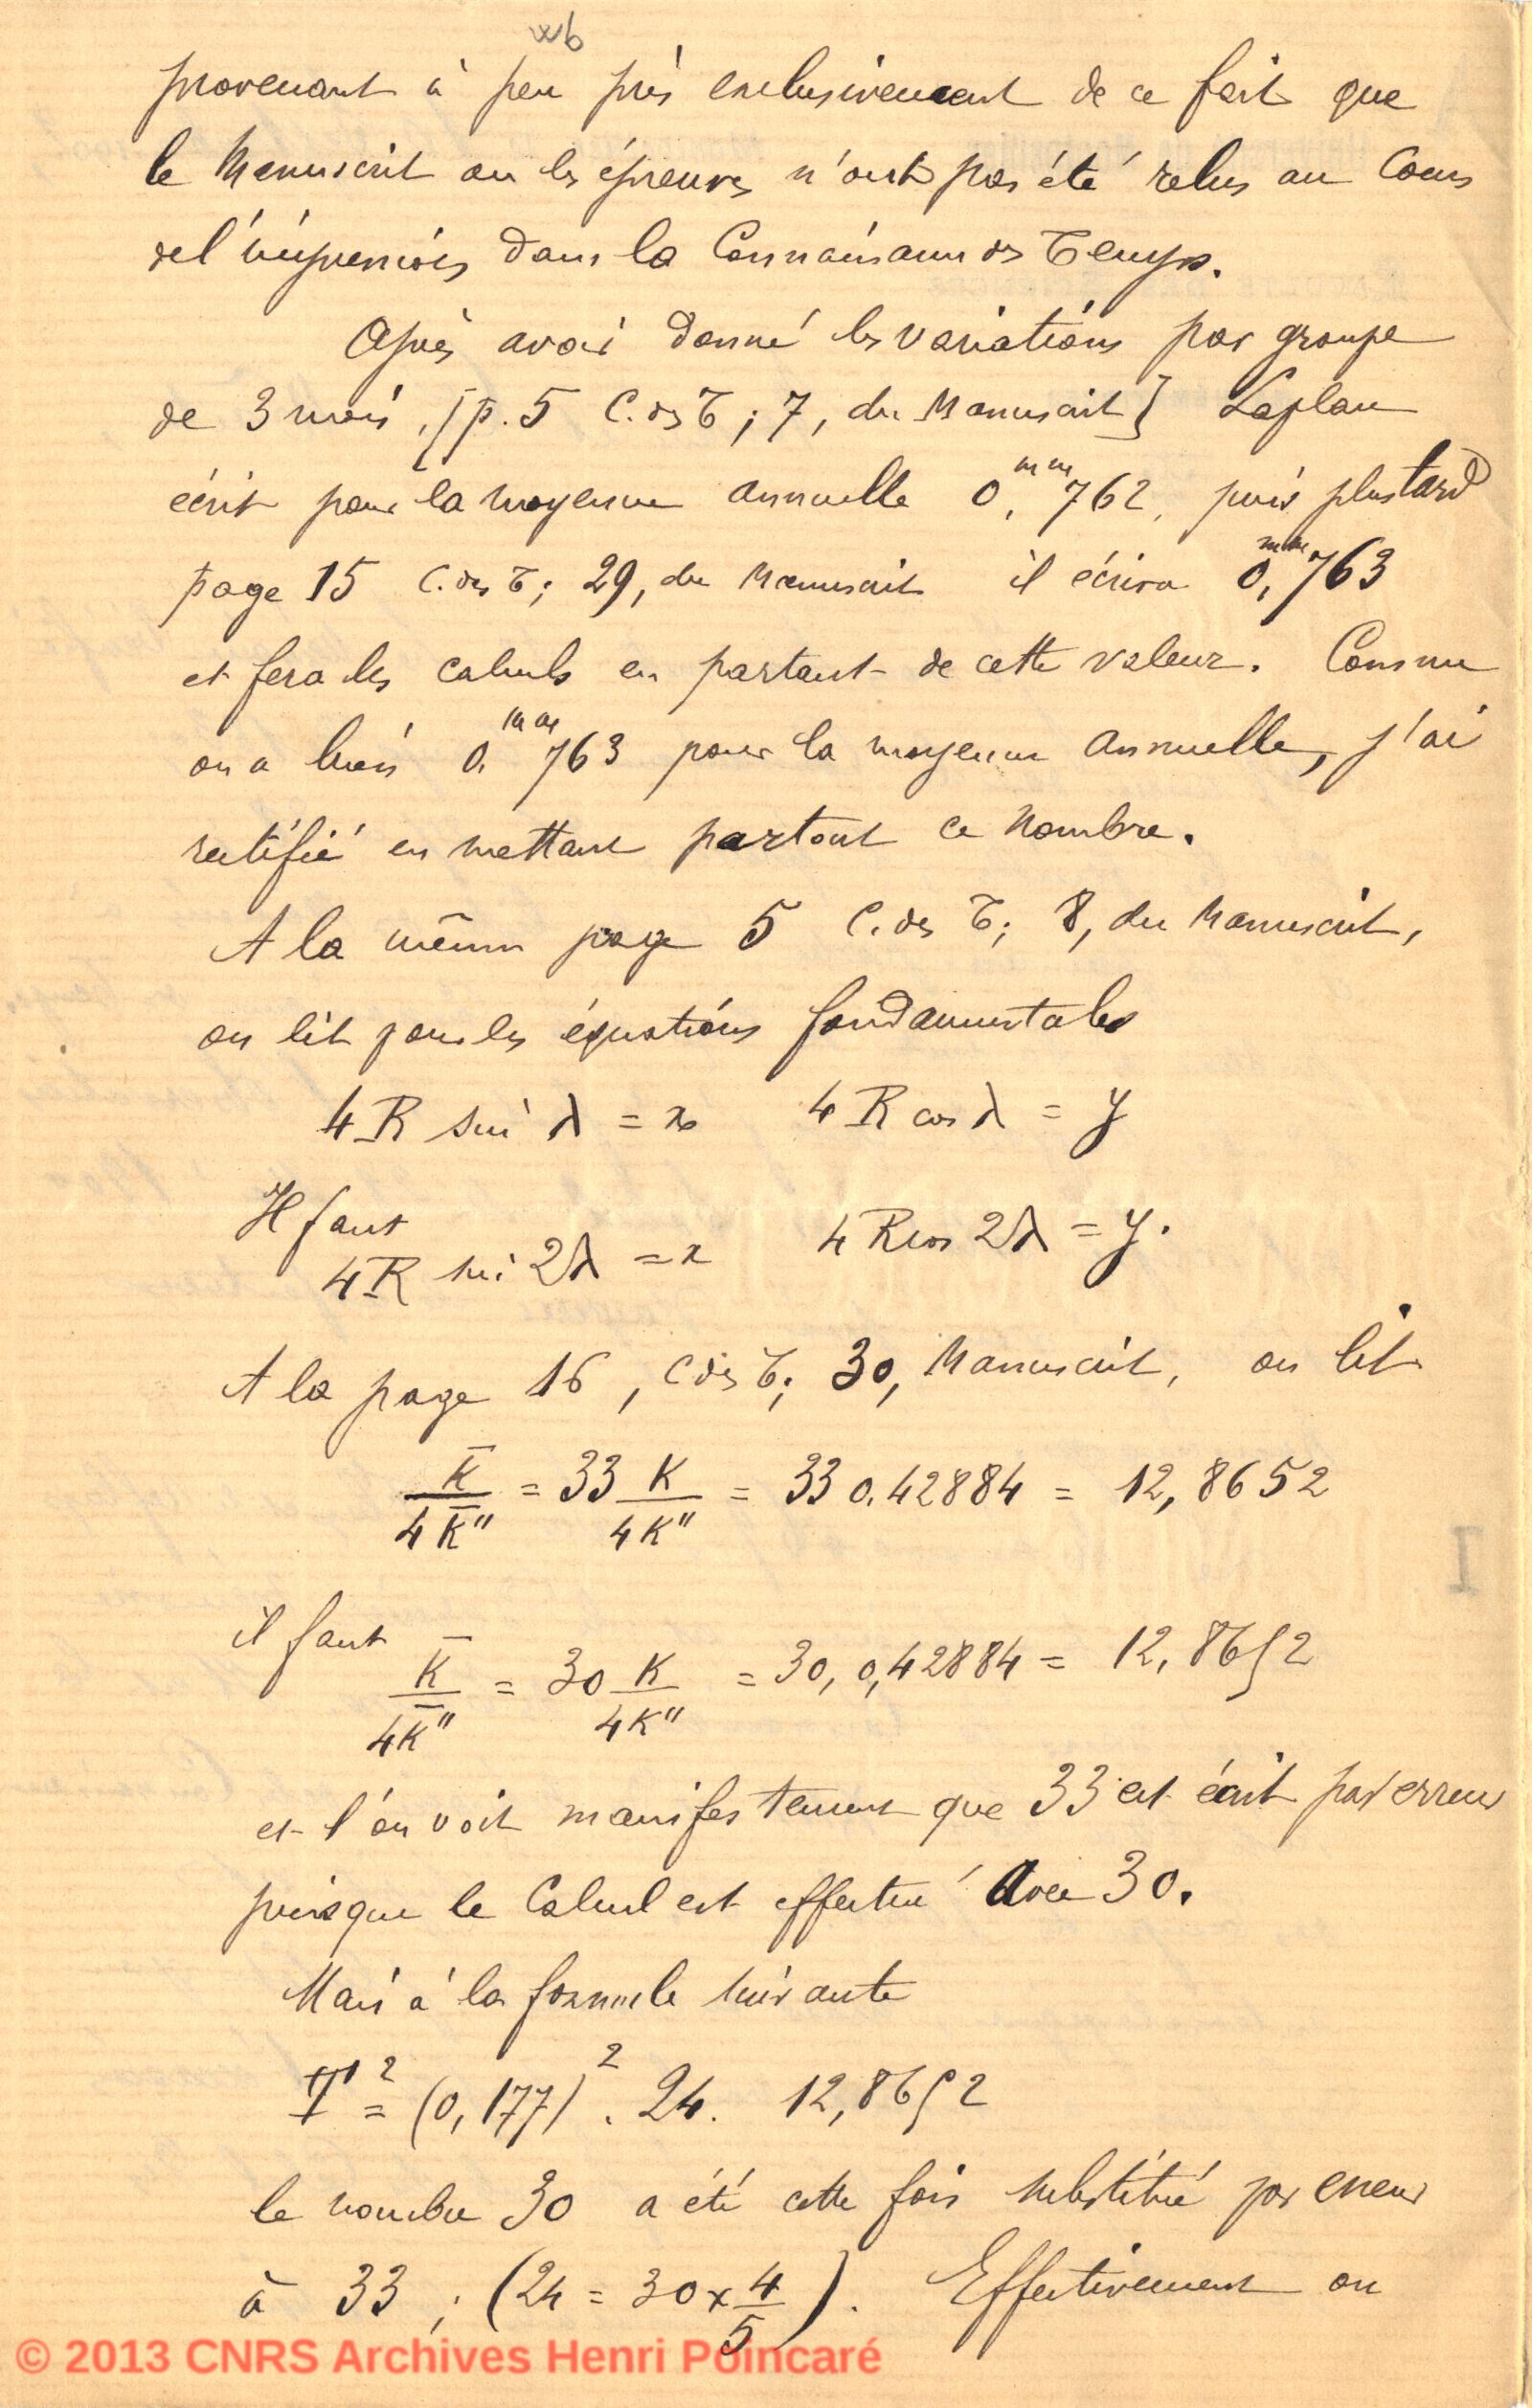 wb
provenant à peu près exclusivement de ce fait que
le Manuscrit ou les épreuves n'ont pas été relus au Cours
de l'impression dans la Connaissance des Temps.
Après avoir donné les variations par groupe
de 3 mois, [p. 5 C. des T ; 7, du Manuscrit] Laplace
écrit pour la moyenne annuelle 0,ᵐᵐ762, puis plus tard
page 15 C. des T; 29, du Manuscrit il écrira 0,ᵐᵐ763
et fera les calculs en partant de cette valeur. Comme
on a bien 0,ᵐᵐ763 pour la moyenne Annuelle, j'ai
rectifié en mettant partout ce Nombre.
A la même page 5 C. des T; 8, du Manuscrit,
on lit pour les équations fondamentales
4R sin λ = x 4R cos λ = y
Il faut
4R sin 2λ = x 4R cos 2λ = y.
A la page 16, C des T; 30, Manuscrit, on lit
K̄/4K̄" = 33 K/4K" = 33 0,42884 = 12,8652
il faut
K̄/4K̄" = 30 K/4K" = 30, 0,42884 = 12,8652
et l'on voit manifestement que 33 est écrit par erreur
puisque le Calcul est effectué Avec 30.
Mais à la formule suivante
T'² = (0,177)². 24. 12,8652
le nombre 30 a été cette fois substitué par erreur
à 33 ; (24 = 30 x 4/5). Effectivement on
© 2013 CNRS Archives Henri Poincaré